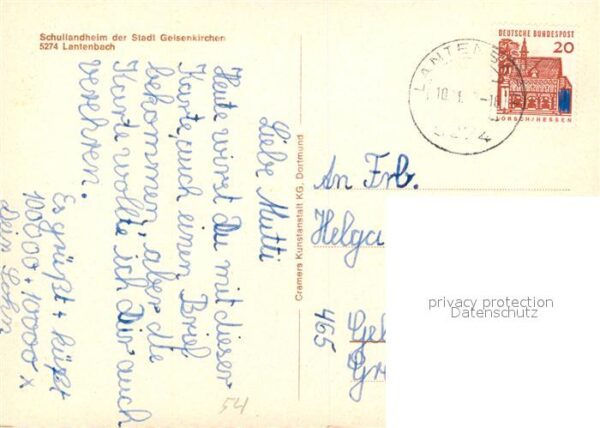 Schullandheim der Stadt Gelsenkirchen
5274 Lantenbach
Liebe Mutti
Heute wirst Du mit dieser
Karte, auch einen Brief
bekommen, aber die
Karte wollte ich Dir auch
verehren.
Es grüßt + küßt
100000 + 10000 x
dein
Cramers Kunstanstalt KG, Dortmund
DEUTSCHE BUNDESPOST
20
LORSCH/HESSEN
LANTEN
5274
An Frl.
Helga
465
Ge
privacy protection
Datenschutz
54